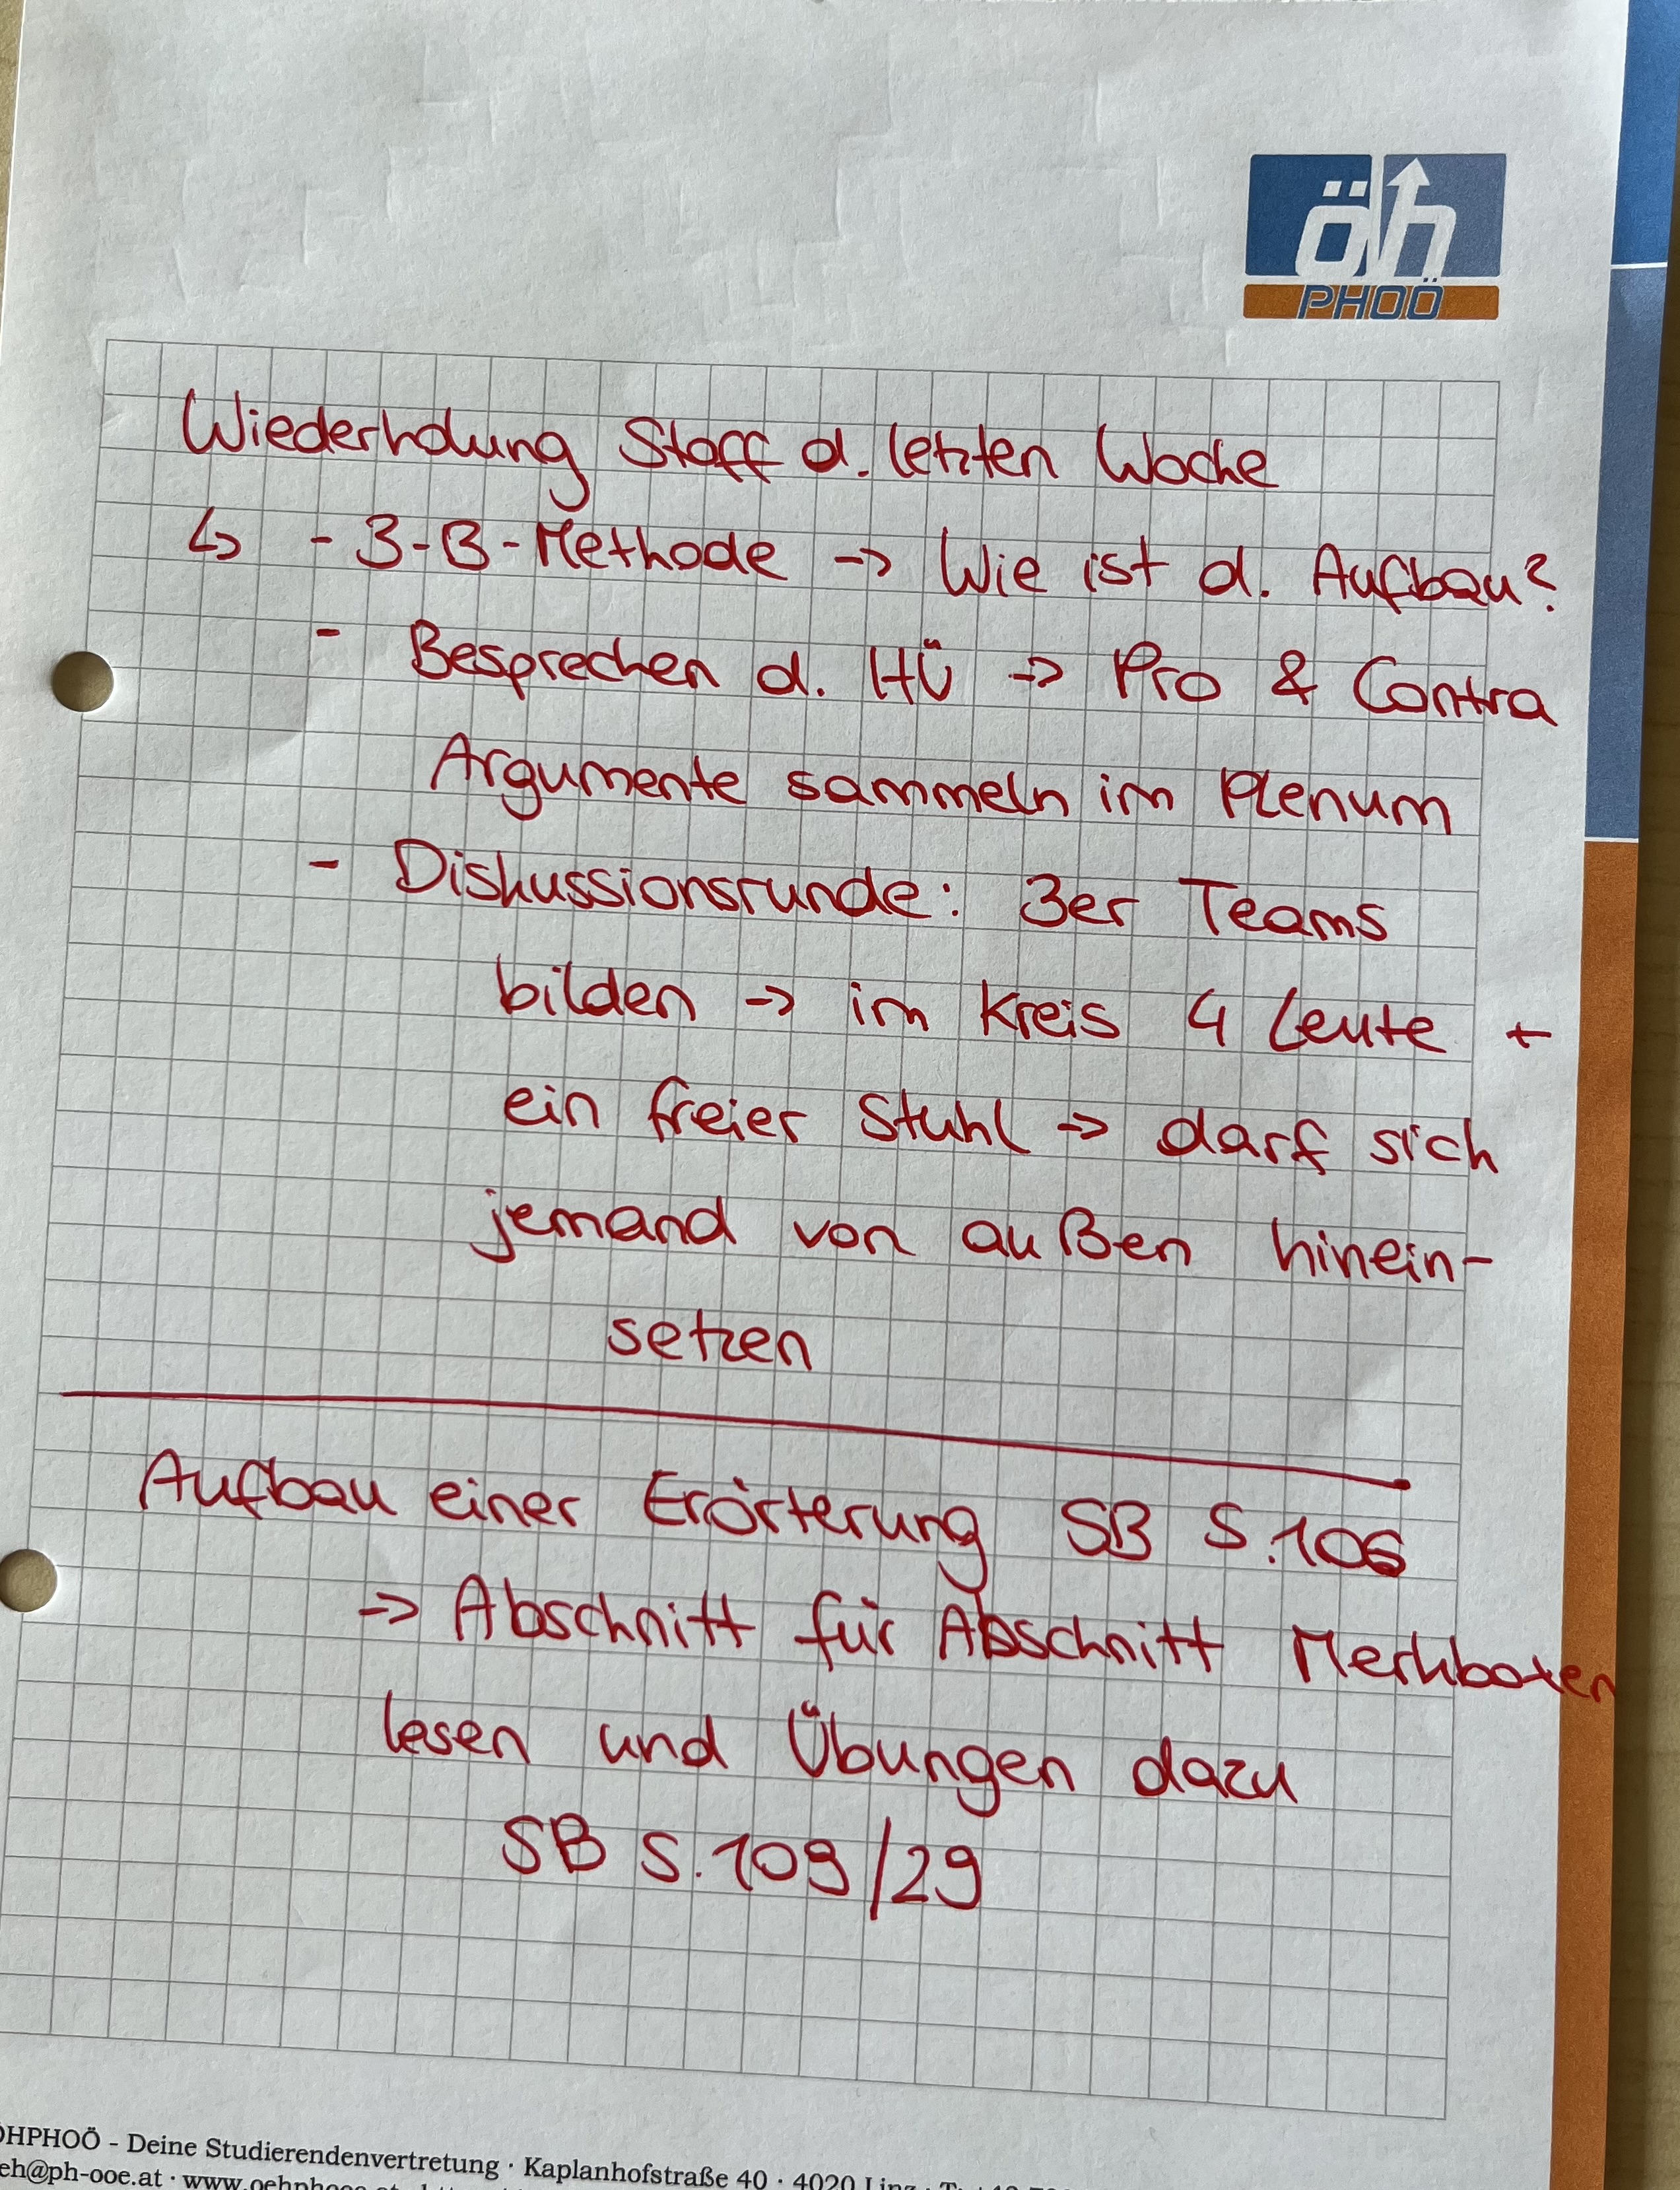 öh
PHOÖ
Wiederholung Stoff d. letzten Woche
↳ - 3-B-Methode -> Wie ist d. Aufbau?
- Besprechen d. HÜ -> Pro & Contra
Argumente sammeln im Plenum
- Diskussionsrunde: 3er Teams
bilden -> im Kreis 4 Leute +
ein freier Stuhl -> darf sich
jemand von außen hinein-
setzen
Aufbau einer Erörterung SB S.106
-> Abschnitt für Abschnitt Merkboxen
lesen und Übungen dazu
SB S.109/29
ÖHPHOÖ - Deine Studierendenvertretung · Kaplanhofstraße 40 · 4020 Linz
eh@ph-ooe.at · www.oehphooe.at